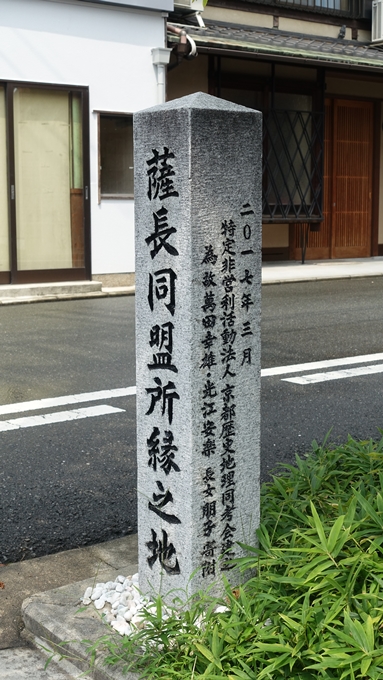 薩長同盟所縁之地
二〇一七年三月
特定非営利活動法人 京都歴史地理同考会建之
為故萬田幸雄・光江安楽 長女 朋子寄附